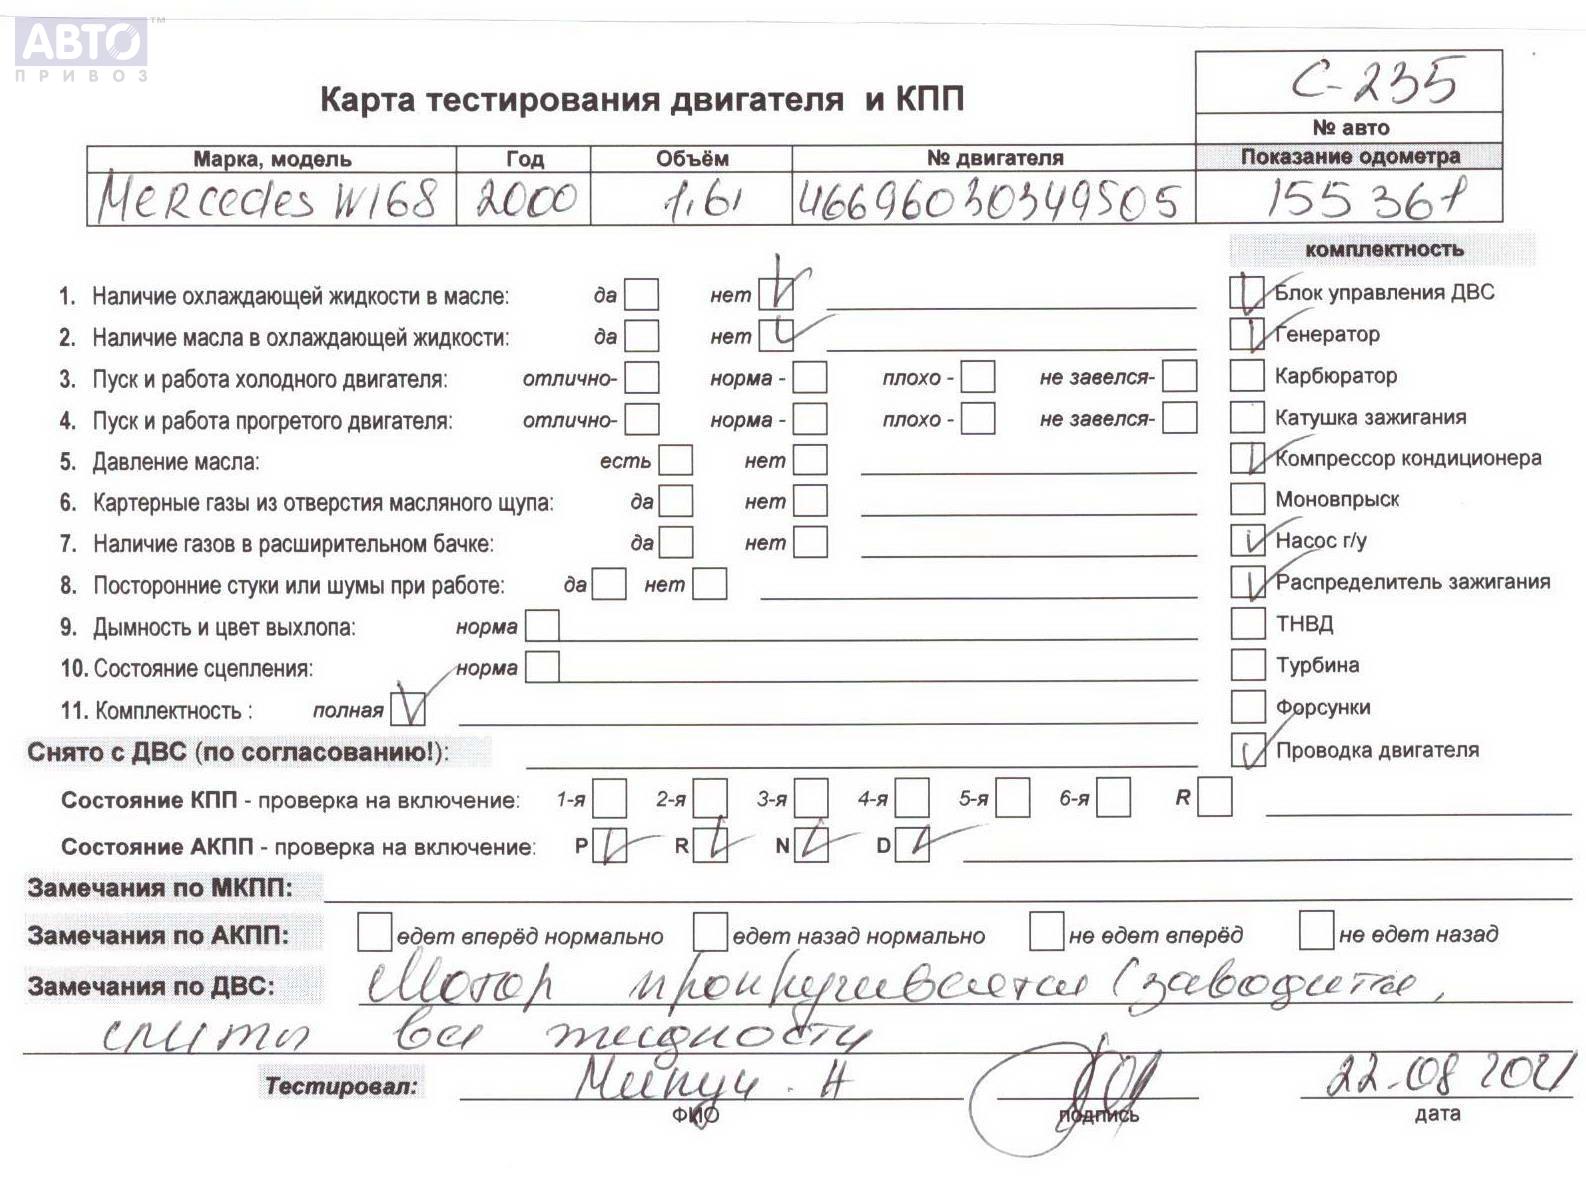 АВТО™
ПРИВОЗ
С-235
Карта тестирования двигателя и КПП
№ авто
Марка, модель Год Объём № двигателя Показание одометра
Mercedes W168 2000 1,6i 46696030349505 155 361
комплектность
1. Наличие охлаждающей жидкости в масле: да нет Блок управления ДВС
2. Наличие масла в охлаждающей жидкости: да нет Генератор
3. Пуск и работа холодного двигателя: отлично- норма - плохо - не завелся- Карбюратор
4. Пуск и работа прогретого двигателя: отлично- норма - плохо - не завелся- Катушка зажигания
5. Давление масла: есть нет Компрессор кондиционера
6. Картерные газы из отверстия масляного щупа: да нет Моновпрыск
7. Наличие газов в расширительном бачке: да нет Насос г/у
8. Посторонние стуки или шумы при работе: да нет Распределитель зажигания
9. Дымность и цвет выхлопа: норма ТНВД
10. Состояние сцепления: норма Турбина
11. Комплектность : полная Форсунки
Снято с ДВС (по согласованию!): Проводка двигателя
Состояние КПП - проверка на включение: 1-я 2-я 3-я 4-я 5-я 6-я R
Состояние АКПП - проверка на включение: P R N D
Замечания по МКПП:
Замечания по АКПП: едет вперёд нормально едет назад нормально не едет вперёд не едет назад
Замечания по ДВС: Мотор прокручивается (заводится,
слиты все жидкости
Тестировал: 22.08 2021
ФИО подпись дата